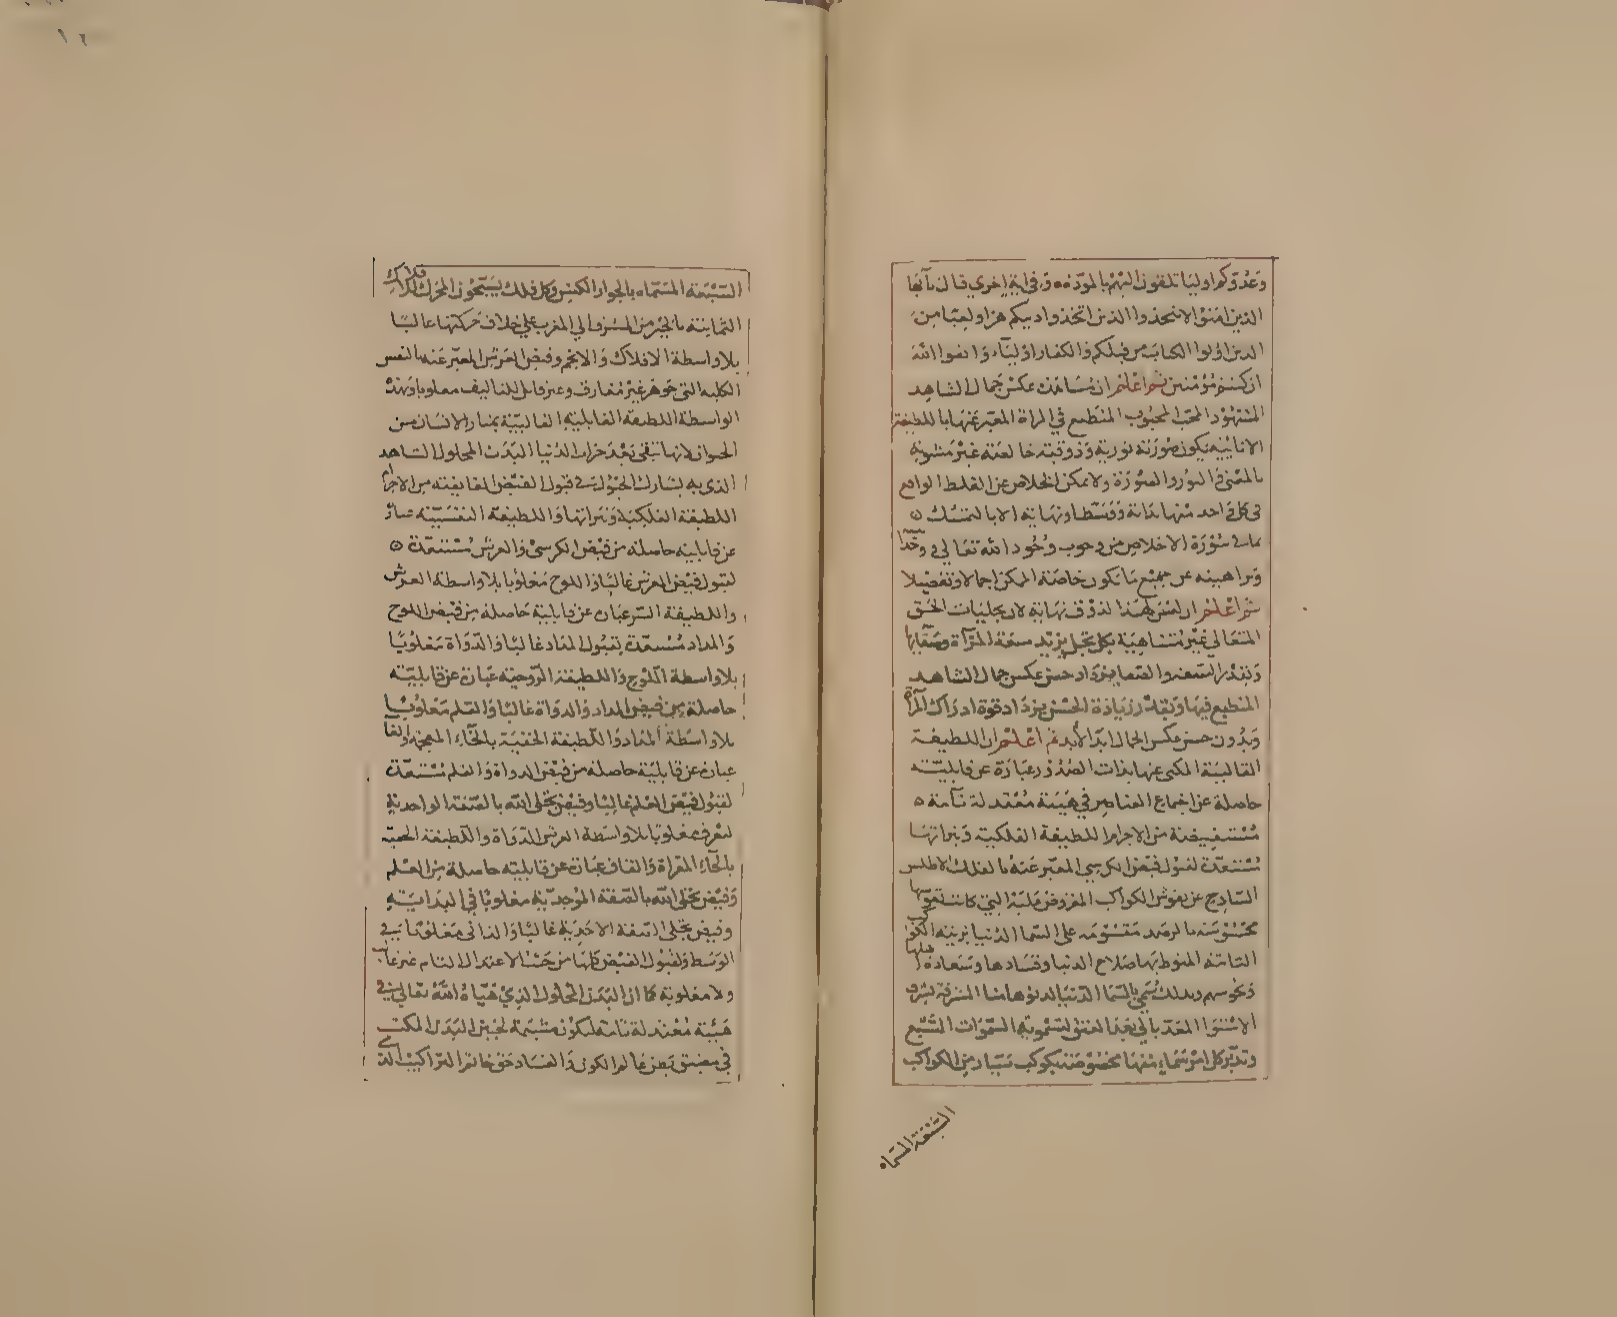 وعدوكم اوليا تلقون اليهم بالمودة وفي اية اخري قال يآيها
الذين امنوا لا تتخذوا الذين اتخذوا دينكم هزوا ولعبا من
الدين اوتوا الكتاب من قبلكم والكفار اوليآء واتقوا الله
ان كنتم مؤمنين ثم اعلم ان مشاهدة عكس جمال الشاهد
المشهود المحب المحبوب المنطبع في المرآة المعبر عنها باللطيفة
الانائية يكون صورته نورية وذوقيته خالصة غير مشوبة
بالمعنى والنور والصورة ولا يمكن الخلاص عن الغلط الواقع
في كل واحد منها بداية ووسطا ونهاية الا بالتمسك
بما في سورة الاخلاص من وجوب وجود الله تعالي و
ونزاهيته عن جميع ما تكون خاصة الممكن اجمالا وتفصيلا
ثم اعلم ان ليس لهذا الذوق نهاية لان تجليات الحق
المتعالي غير متناهية بكل تجل يزيد سعة المرآة وصقالها
وبقدر السعة والصقا يزداد حسن عكس جمال الشاهد
المنطبع فيها وبقدر زيادة الحسن يزداد قوة ادراك المرآة
وبدون حسن عكس الجمال ابد الآبد ثم اعلم ان اللطيفة
القالبية المكنى عنها بذات الصدور عبارة عن قابلية
حاصلة عن اجماع العناصر في هيئة معتدلة تآمة
مستفيضة من الاجرام اللطيفة الفلكية ونيراتها
مستعدة لقبول فيض الكرسي المعبر عنه بالفلك الاطلس
الساذج عن نقوش الكواكب المفروض عليه التي كانت
محسوسة بالرصد مقسومة على السما الدنيا بزينة الكواكب
الثابتة المنوط بها صلاح الدنيا وفسادها وسعادة اهلها
ونحوسهم وبذلك تسمي بالسما الدنيا لدنوها منا المشرفة بشرف
الاستوا المعد بالي بعد الفتق لتسوية السموات السبع
وتدبير كل امر سماء منها مخصوصة بكوكب سيار من الكواكب
السبعة المسماه
السبعة المسماه بالجوار الكنس وكل في فلك يسبحون المحرك للافلاك
الثمانية بالجبر من المشرق الي المغرب علي خلاف حركتها غالبا
بلا واسطة الافلاك والانجم وفيض العرش المعبر عنه بالنفس
الكلية التي جوهر غير مفارق وغير قابل للتاليف مغلوبا وبهذه
الواسطة اللطيفة القابلية القالبية يمتاز الانسان من
الحيوان لانها تبقى بعد خراب الدنيا البدن المحلول الشاهد
الذي به يشارك الحيوان في قبول الفيض الفايضة من الاجرام
اللطيفة الفلكية ونيراتها واللطيفة النفسية عبارة
عن قابلية حاصلة من فيض الكرسي والعرش مستعدة
لقبول فيض العرش غالبا واللوح مغلوبا بلا واسطة العرش
واللطيفة السر عبارة عن قابلية حاصلة من فيض اللوح
والمداد مستعدة لقبول المداد غالبا والدواة مغلوبا
بلا واسطة اللوح واللطيفة الروحية عبارة عن قابلية
حاصلة من فيض المداد والدواة غالبا والقلم مغلوبا
بلا واسطة المداد واللطيفة الخفية بالخآء المعجمة والفا
عبارة عن قابلية حاصلة من فيض الدواة والقلم مستعدة
لقبول فيض القلم غالبا وفيض تجلى الله بالصفة الواحدية
مغلوبا بلا واسطة العرش الدواة واللطيفة الحقية
بالحآء المقراة والقاف عبارة عن قابلية حاصلة من القلم
وفيض تجلى الله بالصفة الموجدية مغلوبا في البداية
وفيض تجلى الصفة الاحدية غالبا والذاتى مغلوبا في
الوسط ولقبول الفيض كلها من حيث الاعتدال التام غير غالب
ولا مغلوبة كما ان البدن المحلول الذي هياه الله تعالي في
هيئة معتدلة تامة ليكون مشيمة لجنين البدن المكتسب
في مضيق بطن عالم الكون والفساد حق خاتم التراكيب